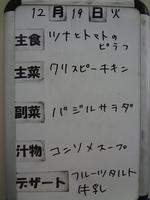 12月19日火
主食 ツナとトマトの
ピラフ
主菜 クリスピーチキン
副菜 バジルサラダ
汁物 コンソメスープ
デザート フルーツタルト
牛乳